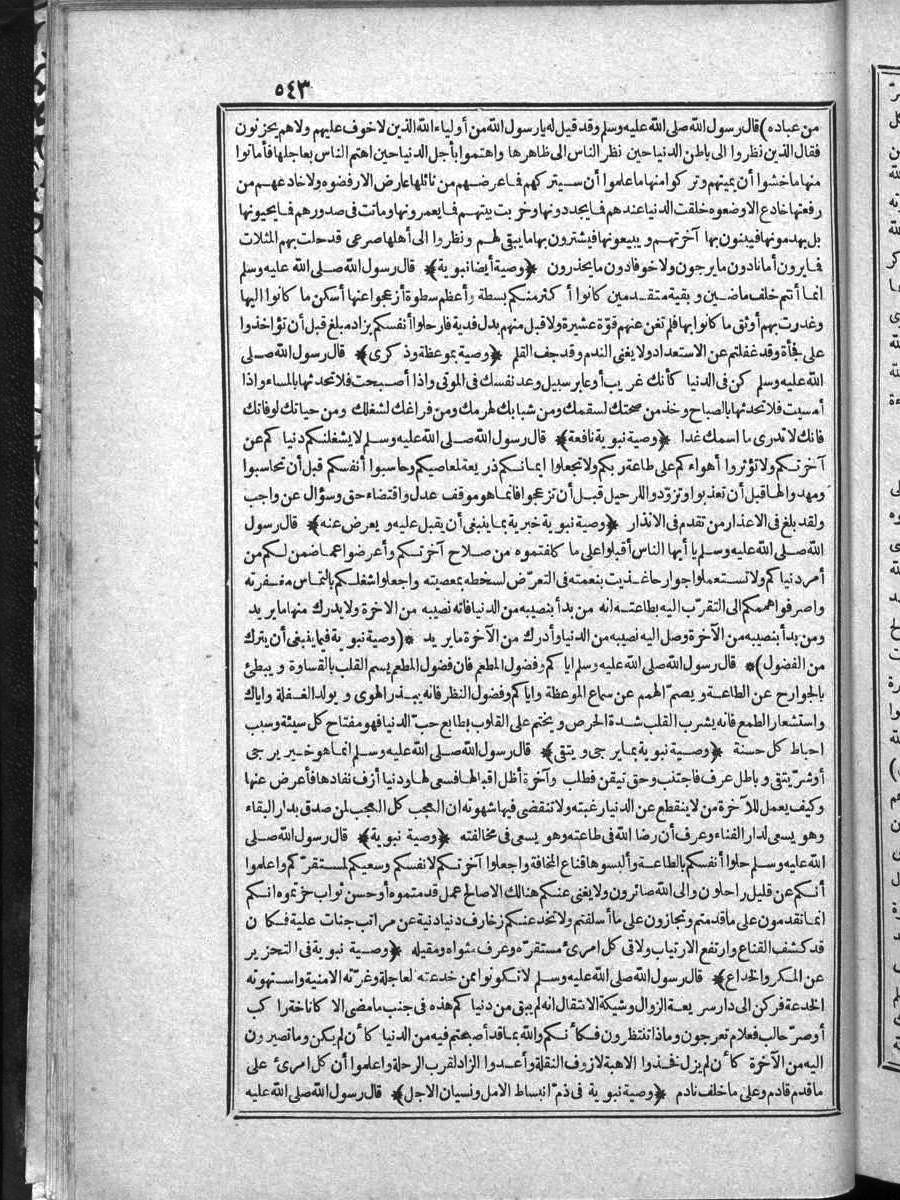 ٥٤٣
من عباده) قال رسول الله صلى الله عليه وسلم وقد قيل له يا رسول الله من أولياء الله الذين لا خوف عليهم ولا هم يحزنون
فقال الذين نظروا الى باطن الدنيا حين نظر الناس الى ظاهرها واهتموا بآجل الدنيا حين اهتم الناس بعاجلها فأماتوا
منها ما خشوا أن يميتهم وتركوا منها ما علموا أن سيتركهم فما عرضهم من نائلها عارض الا رفضوه ولا خادعهم من
رفعتها خادع الا وضعوه خلقت الدنيا عندهم فما يجددونها وخربت بيتهم فما يعمرونها وماتت فى صدورهم فما يحيونها
بل يهدمونها فيبنون بها آخرتهم و يبيعونها فيشترون بها ما يبقى لهم ونظروا الى أهلها صرعى قد حلت بهم المثلات
فما يرون أمانا دون ما يرجون ولا خوفا دون ما يحذرون ﴿وصية أيضا نبوية﴾ قال رسول الله صلى الله عليه وسلم
انما أنتم خلف ماضين و بقية متقدمين كانوا أكثر منكم بسطة وأعظم سطوة أزعجوا عنها أسكن ما كانوا اليها
وغدرت بهم أوثق ما كانوا بها فلم تغن عنهم قوّة عشيرة ولا قبل منهم بدل فدية فارحلوا أنفسكم بزاد مبلغ قبل أن تؤاخذوا
على فجأة وقد غفلتم عن الاستعداد ولا يغنى الندم وقد جف القلم ﴿وصية بموعظة وذكرى﴾ قال رسول الله صلى
الله عليه وسلم كن فى الدنيا كأنك غريب أو عابر سبيل وعد نفسك فى الموتى واذا أصبحت فلا تحدثها بالمساء واذا
أمسيت فلا تحدثها بالصباح وخذ من صحتك لسقمك ومن شبابك لهرمك ومن فراغك لشغلك ومن حياتك لوفاتك
فانك لا تدرى ما اسمك غدا ﴿وصية نبوية نافعة﴾ قال رسول الله صلى الله عليه وسلم لا يشغلنكم دنياكم عن
آخرتكم ولا تؤثروا أهواءكم على طاعة ربكم ولا تجعلوا ايمانكم ذريعة لمعاصيكم وحاسبوا أنفسكم قبل أن تحاسبوا
ومهدوا لها قبل أن تعذبوا وتزوّدوا للرحيل قبل أن تزعجوا فانما هو موقف عدل واقتضاء حق وسؤال عن واجب
ولقد بلغ فى الاعذار من تقدم فى الانذار ﴿وصية نبوية خبرية بما ينبغى أن يقبل عليه و يعرض عنه﴾ قال رسول
الله صلى الله عليه وسلم يا أيها الناس أقبلوا على ما كلفتموه من صلاح آخرتكم وأعرضوا عما ضمن لكم من
أمر دنياكم ولا تستعملوا جوارحا غذيت بنعمته فى التعرّض لسخطه بمعصيته واجعلوا شغلكم بالتماس مغفرته
واصرفوا هممكم الى التقرّب اليه بطاعته انه من بدأ بنصيبه من الدنيا فاته نصيبه من الآخرة ولا يدرك منها ما يريد
ومن بدأ بنصيبه من الآخرة وصل اليه نصيبه من الدنيا وأدرك من الآخرة ما يريد * (وصية نبوية فيما ينبغى أن يترك
من الفضول)* قال رسول الله صلى الله عليه وسلم اياكم وفضول المطعم فان فضول المطعم يسم القلب بالقساوة و يبطئ
بالجوارح عن الطاعة و يصمّ الهمم عن سماع الموعظة واياكم وفضول النظر فانه يبذر الهوى و يولد الغفلة واياك
واستشعار الطمع فانه يشرب القلب شدة الحرص و يختم على القلوب بطابع حبّ الدنيا فهو مفتاح كل سيئة وسبب
احباط كل حسنة ﴿وصية نبوية بما يرجى و يتقى﴾ قال رسول الله صلى الله عليه وسلم انما هو خير يرجى
أو شرّ يتقى و باطل عرف فاجتنب وحق تيقن فطلب وآخرة أظل اقبالها فسعى لها ودنيا أزف نفادها فأعرض عنها
وكيف يعمل للآخرة من لا ينقطع عن الدنيا رغبته ولا تنقضى فيها شهوته ان العجب كل العجب لمن صدق بدار البقاء
وهو يسعى لدار الفناء وعرف أن رضا الله فى طاعته وهو يسعى فى مخالفته ﴿وصية نبوية﴾ قال رسول الله صلى
الله عليه وسلم حلوا أنفسكم بالطاعة وألبسوها قناع المخافة واجعلوا آخرتكم لانفسكم وسعيكم لمستقرّكم واعلموا
أنكم عن قليل راحلون والى الله صائرون ولا يغنى عنكم هنالك الا صالح عمل قدمتموه أو حسن ثواب حزتموه انكم
انما تقدمون على ما قدمتم وتجازون على ما أسلفتم ولا تخدعنكم زخارف دنيا دنية عن مراتب جنات علية فكان
قد كشف القناع وارتفع الارتياب ولاقى كل امرئ مستقرّه وعرف مثواه ومقيله ﴿وصية نبوية فى التحزير
عن المكر والخداع﴾ قال رسول الله صلى الله عليه وسلم لا تكونوا ممن خدعته العاجلة وغرّته الامنية واستهوته
الخدعة فركن الى دار سريعة الزوال وشيكة الانتقال انه لم يبق من دنياكم هذه فى جنب ما مضى الا كاناخة راكب
أو صرّ حالب فعلام تعرجون وماذا تنتظرون فكأنكم والله بما قد أصبحتم فيه من الدنيا كأن لم يكن وما تصيرون
اليه من الآخرة كأن لم يزل فخذوا الاهبة لازوف النقلة وأعدوا الزاد لقرب الرحلة واعلموا أن كل امرئ على
ما قدم قادم وعلى ما خلف نادم ﴿وصية نبوية فى ذمّ انبساط الامل ونسيان الاجل﴾ قال رسول الله صلى الله عليه